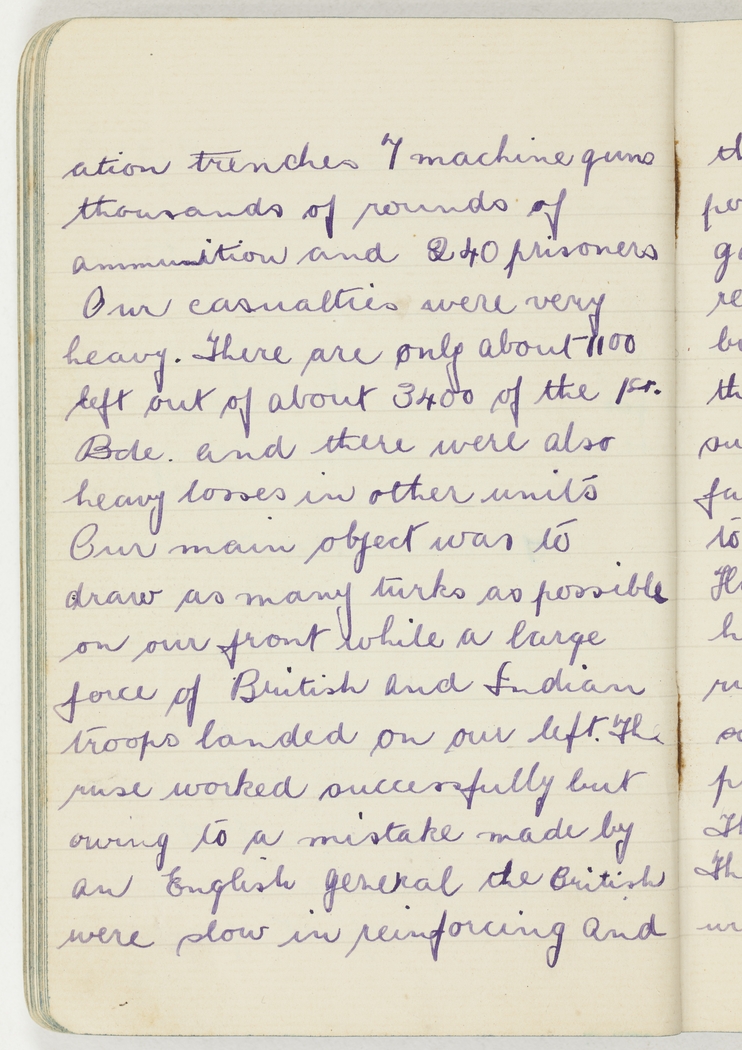 ation trenches 7 machine guns
thousands of rounds of
ammunition and 240 prisoners
Our casualties were very
heavy. There are only about 1100
left out of about 3400 of the 1st.
Bde. and there were also
heavy losses in other units
Our main object was to
draw as many turks as possible
on our front while a large
force of British and Indian
troops landed on our left. The
ruse worked successfully but
owing to a mistake made by
an English general the British
were slow in reinforcing and